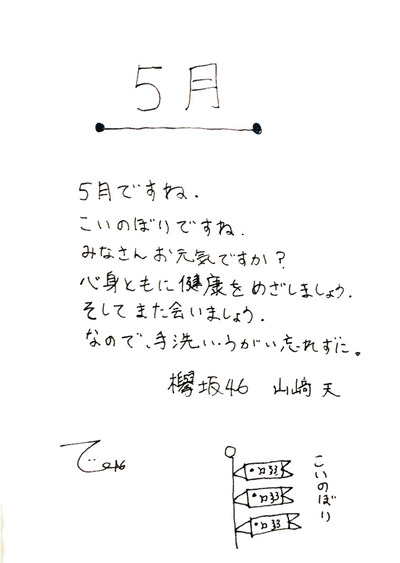 5月
5月ですね.
こいのぼりですね.
みなさんお元気ですか?
心身ともに健康をめざしましょう.
そしてまた会いましょう.
なので、手洗いうがい忘れずに。
欅坂46 山﨑天
こいのぼり